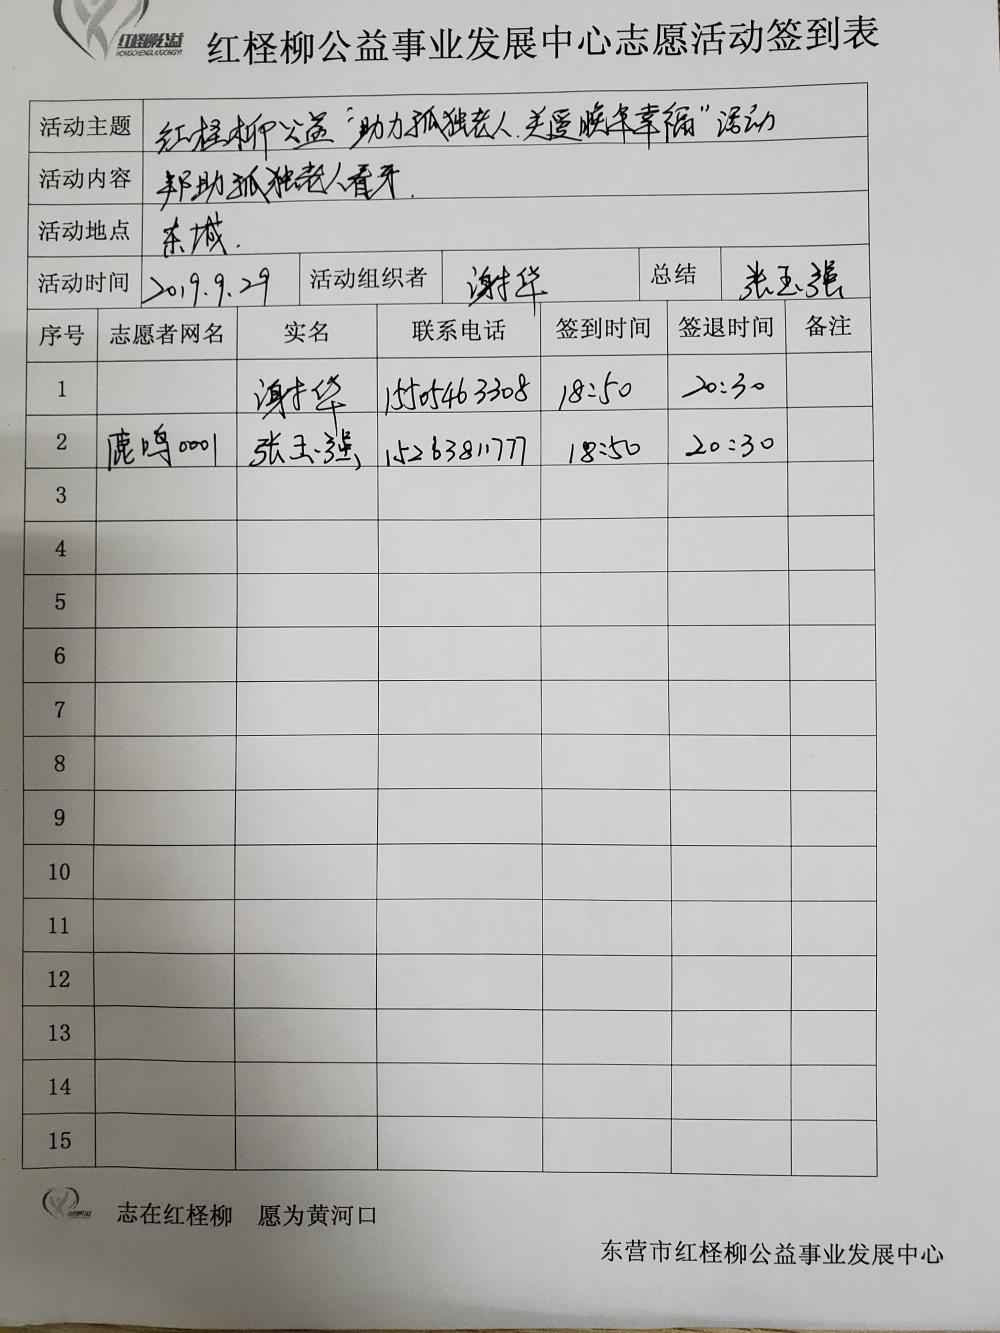 红柽柳公益
HONGCHENGLIUGONGYI
红柽柳公益事业发展中心志愿活动签到表
活动主题 红柽柳公益“助力孤独老人.关爱晚年幸福”活动
活动内容 帮助孤独老人看牙.
活动地点 东城.
活动时间 2019.9.29 活动组织者 谢华 总结 张玉强
序号 志愿者网名 实名 联系电话 签到时间 签退时间 备注
1 谢华 15505463308 18:50 20:30
2 鹿鸣0001 张玉强 15263811777 18:50 20:30
3
4
5
6
7
8
9
10
11
12
13
14
15
志在红柽柳 愿为黄河口
东营市红柽柳公益事业发展中心